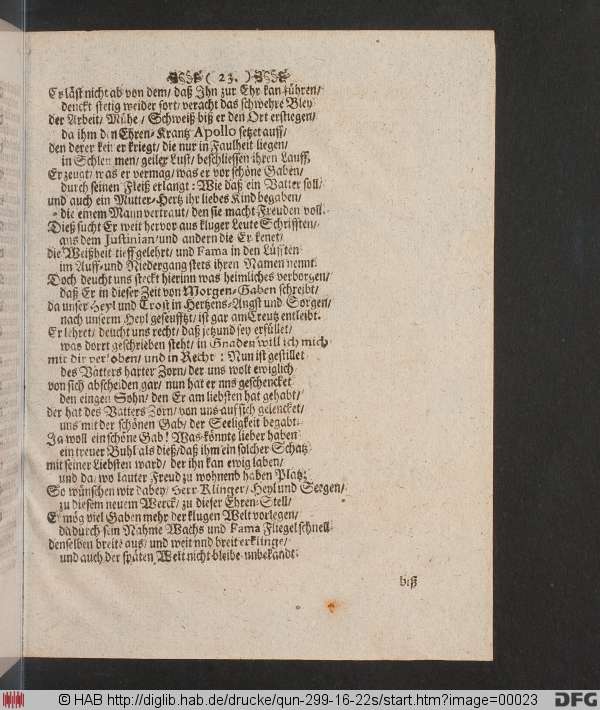 ( 23. )
Er läst nicht ab von dem/ daß Ihn zur Ehr kan führen/
denckt stetig weider fort/ veracht das schwehre Bley
der Arbeit/ Mühe/ Schweiß biß er den Ort erstiegen/
da ihm den Ehren-Krantz Apollo setzet auff/
den derer keiner kriegt/ die nur in Faulheit liegen/
in Schlemmen/ geiler Lust/ beschliessen ihren Lauff,
Erzeugt/ was er vermag/ was er vor schöne Gaben/
durch seinen Fleiß erlangt: Wie daß ein Vatter soll/
und auch ein Mutter-Hertz ihr liebes Kind begaben/
die einem Mann vertraut/ den sie macht Freuden voll.
Dieß sucht Er weit hervor aus kluger Leute Schrifften/
aus dem Justinian/ und andern die Er kenet/
die Weißheit tieff gelehrt/ und Fama in den Lüfften
im Auff- und Niedergang stets ihren Namen nennt.
Doch deucht uns steckt hierinn was heimliches verborgen/
daß Er in dieser Zeit von Morgen-Gaben schreibt/
da unser Heyl und Trost in Hertzens-Angst und Sorgen/
nach unserm Heyl geseufftzt/ ist gar am Creutz entleibt.
Er lehret/ deucht uns recht/ daß jetzund sey erfüllet/
was dorrt geschrieben steht/ in Gnaden will ich mich
mit dir verloben/ und in Recht: Nun ist gestillet
des Vatters harter Zorn/ der uns wolt ewiglich
von sich abscheiden gar/ nun hat er nns geschencket
den eingen Sohn/ den Er am liebsten hat gehabt/
der hat des Vatters Zorn/ von uns auf sich gelencket/
uns mit der schönen Gab/ der Seeligkeit begabt.
Ja woll ein schöne Gab! Was könnte lieber haben
ein treuer Buhl als dieß/ daß ihm ein solcher Schatz
mit seiner Liebsten ward/ der ihn kan ewig laben/
und da/ wo lauter Freud zu wohnend haben Platz:
So wünschen wir dabey/ Herr Klinger/ Heyl und Segen/
zu diesem neuem Werck/ zu dieser Ehren-Stell/
Er mög viel Gaben mehr der klugen Welt vorlegen/
dadurch sein Nahme Wachs und Fama Fliegel schnell
denselben breite aus/ und weit nnd breit erklinge/
und auch der späten Welt nicht bleibe unbekandt.
biß
© HAB http://diglib.hab.de/drucke/qun-299-16-22s/start.htm?image=00023
DFG